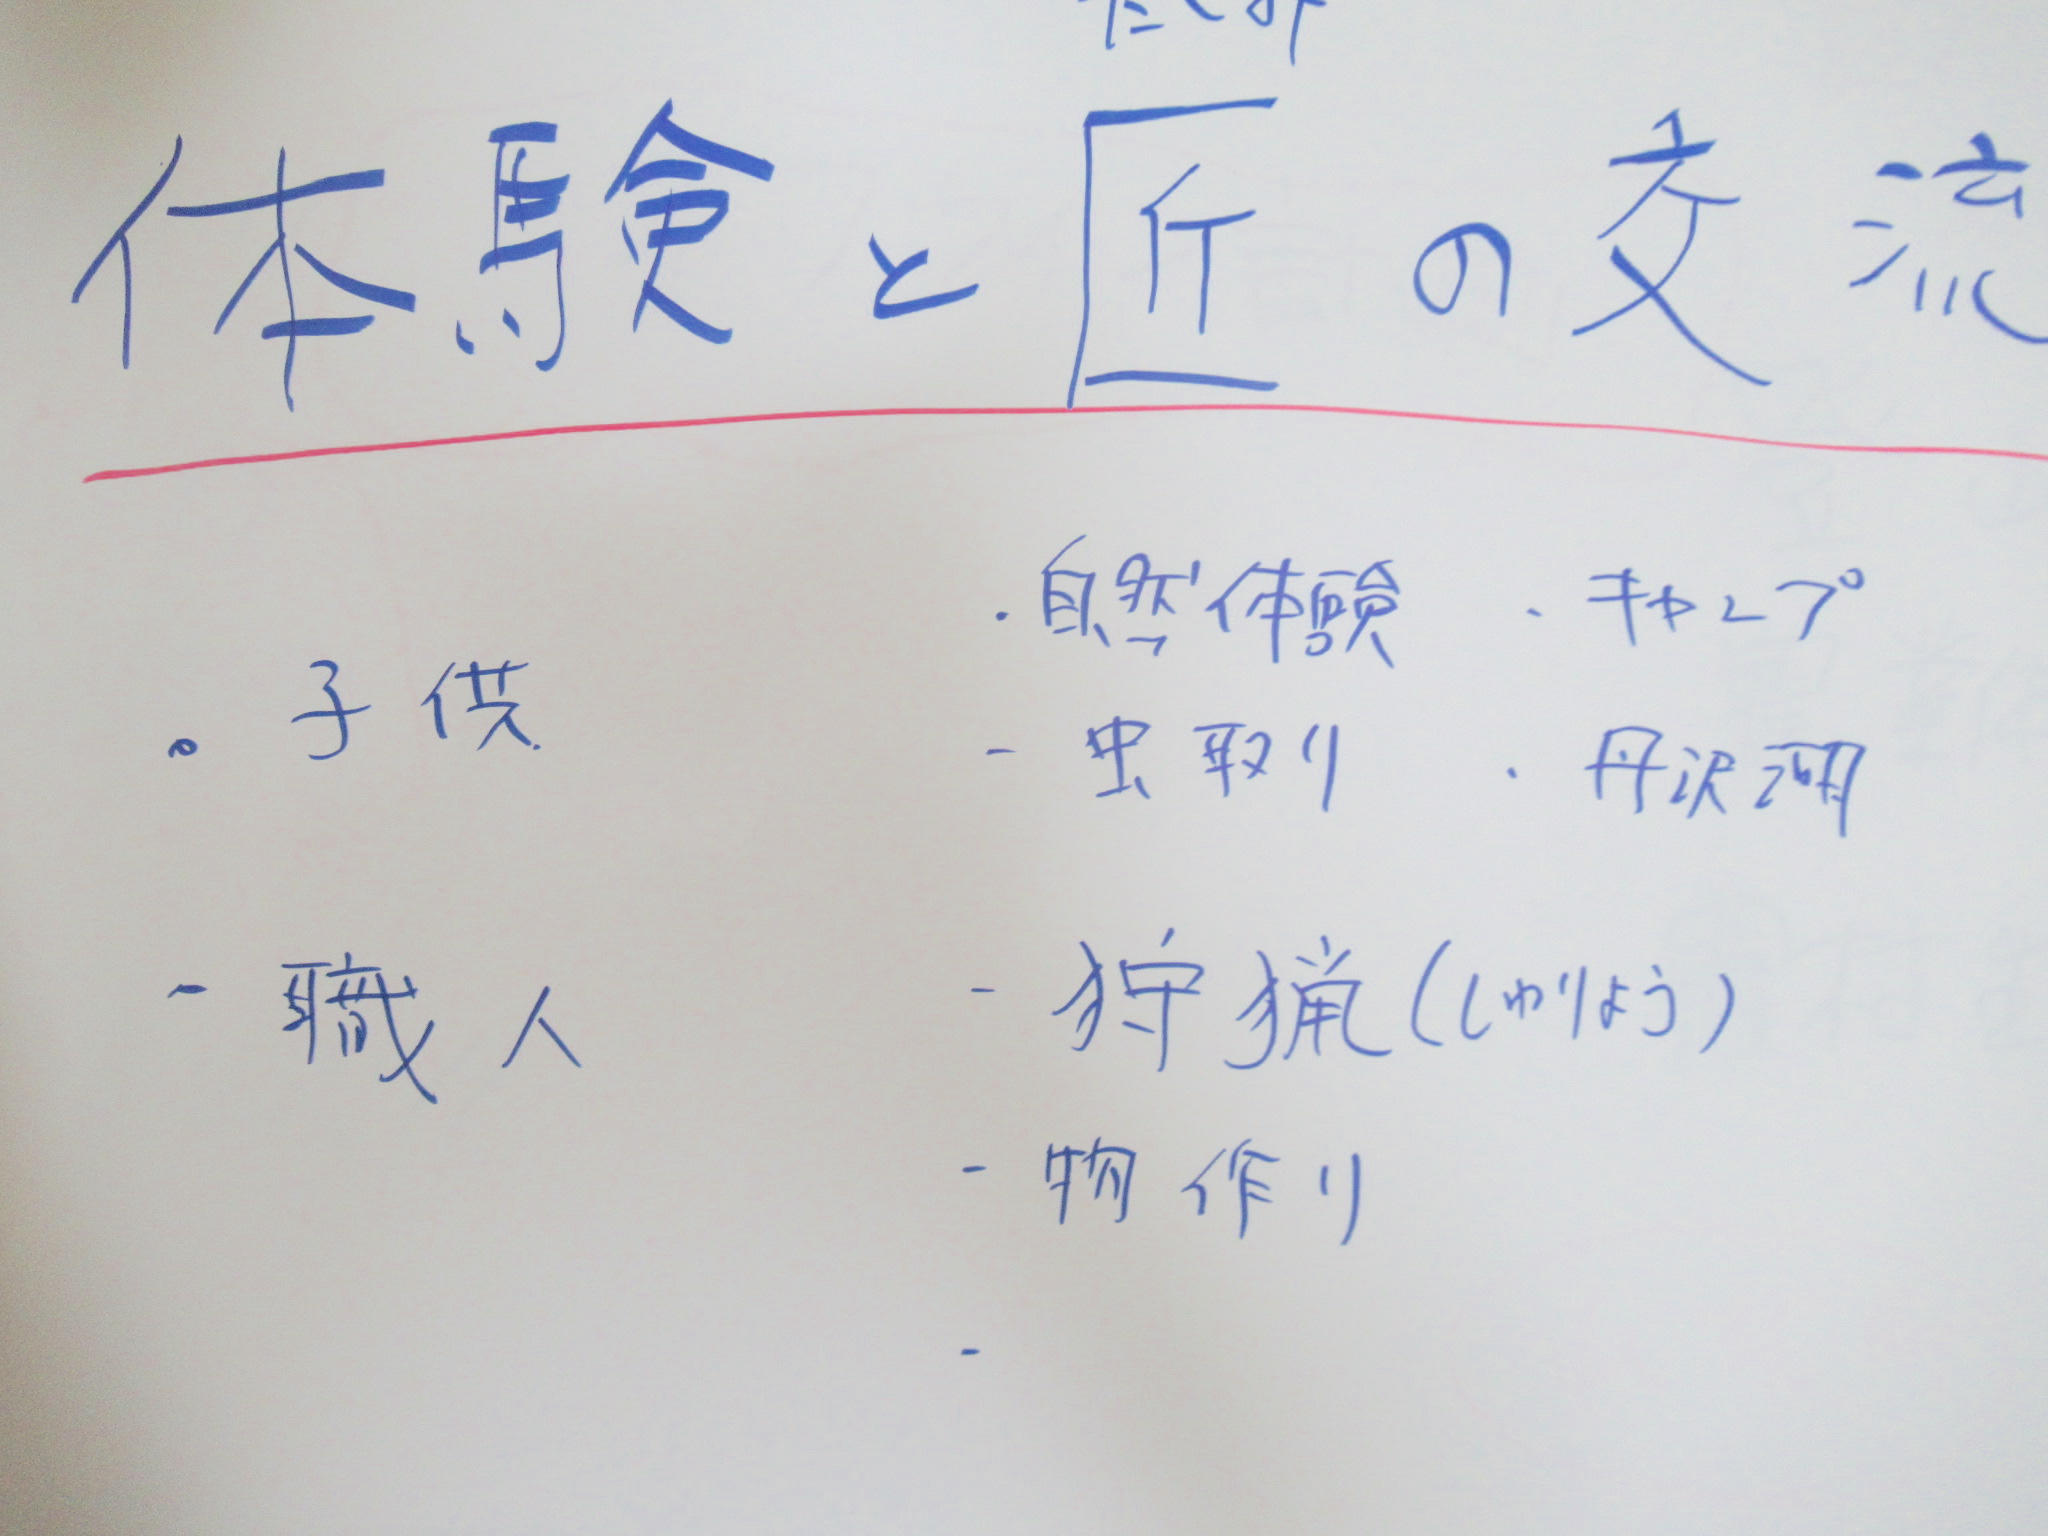 たくみ
体験と匠の交流
・自然体験 ・キャンプ
・子供
- 虫取り ・丹沢湖
- 職人
- 狩猟(しゅりょう)
- 物作り
-